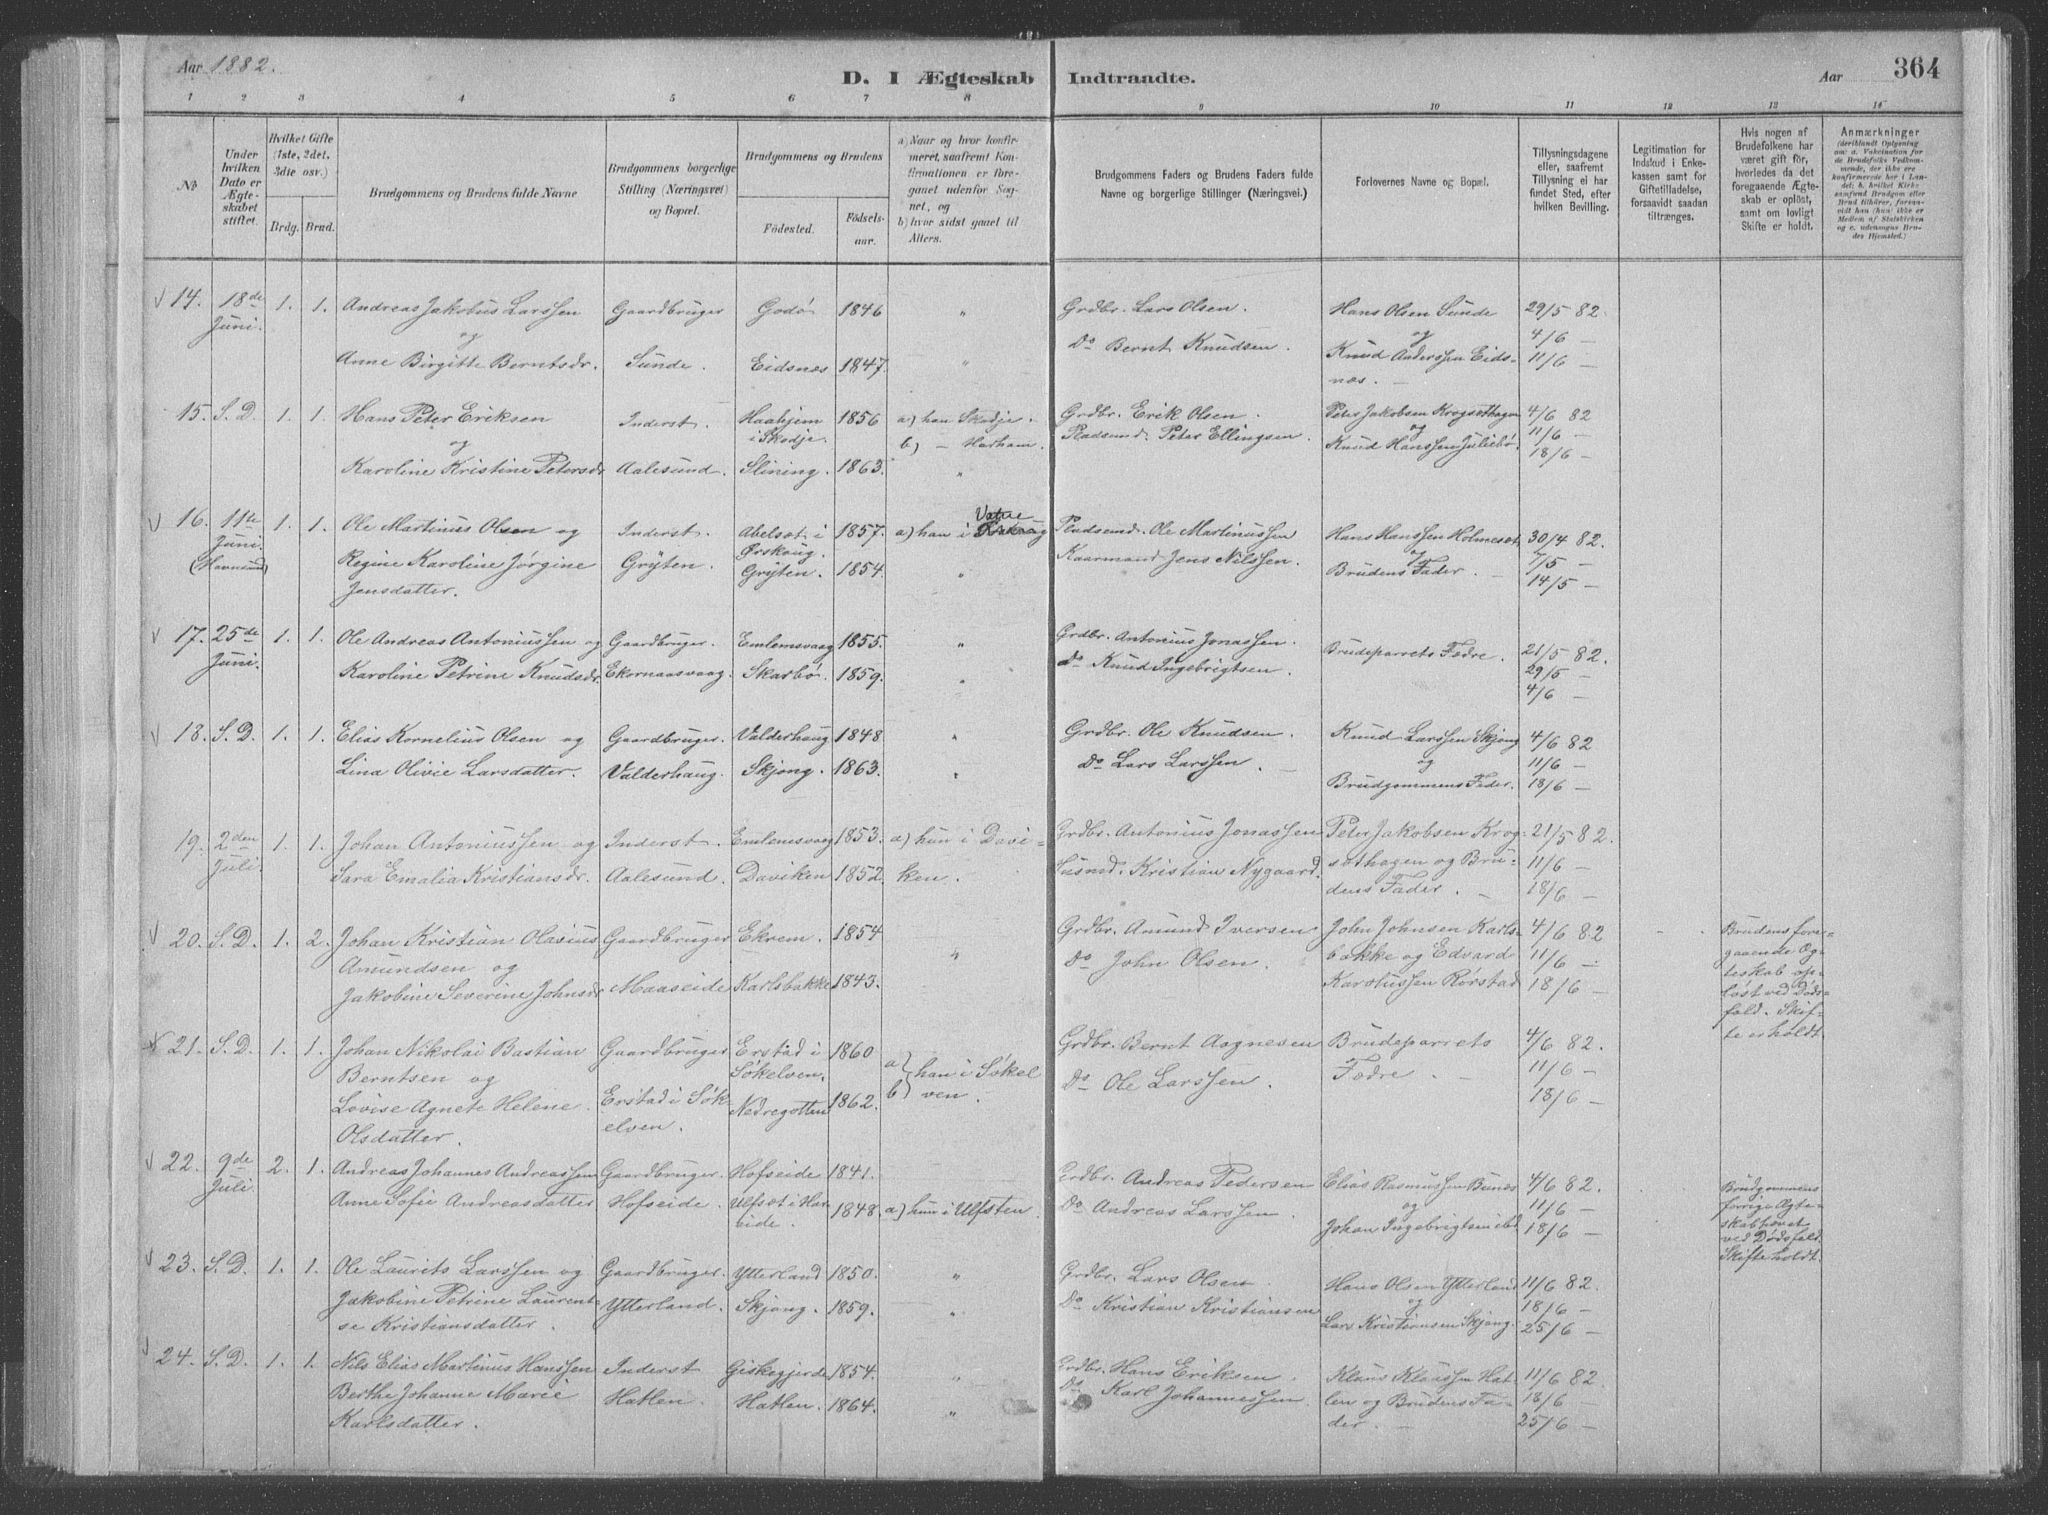 Aar 1882.
D. I Ægteskab Indtraadte.
Aar
364
1 2 3 4 5 6 7 8 9 10 11 12 13 14
No
Under hvilken Dato er Ægteskabet stiftet.
Hvilket Gifte (1ste, 2det, 3die osv.)
Brdg. Brud.
Brudgommens og Brudens fulde Navne
Brudgommens borgerlige Stilling (Næringsvei) og Bopæl.
Brudgommens og Brudens
Fødested.
Fødselsaar.
a) Naar og hvor konfirmeret, saafremt Konfirmationen er foregaaet udenfor Sognet, og
b) hvor sidst gaaet til Alters.
Brudgommens Faders og Brudens Faders fulde Navne og borgerlige Stillinger (Næringsvei.)
Forlovernes Navne og Bopæl.
Tillysningsdagene eller, saafremt Tillysning ei har fundet Sted, efter hvilken Bevilling.
Legitimation for Indskud i Enkekassen samt for Giftetilladelse, forsaavidt saadan tiltrænges.
Hvis nogen af Brudefolkene har været gift før, hvorledes da det foregaaende Ægteskab er opløst, samt om lovligt Skifte er holdt.
Anmærkninger
(deriblandt Oplysning om: a. Vakcination for de Brudefolks Vedkommende, der ikke ere konfirmerede her i Landet; b. hvilket Kirkesamfund Brudgom eller Brud tilhører, forsaavidt han (hun) ikke er Medlem af Statskirken og c. udensogns Brudes Hjemsted.)
14. 18de Juni. 1. 1. Andreas Jakobus Larssen Gaardbruger Godø 1846 " Grdbr. Lars Olsen. Hans Olsen Sunde 29/5 82.
og og 4/6 —
Anne Birgitte Berntsdr. Sunde. Eidsnæs 1847. " Do Bernt Knudsen. Knud Anderssen Eidsnæs. — 11/6 —
15. S. D. 1. 1. Hans Peter Eriksen Inderst. Haahjem i Skodje. 1856 a) han Skodje. Grdbr. Erik Olsen. Peter Jakobsen Krogsethagen 4/6 82
og b) — Harham. Pladsmd. Peter Ellingsen. og 11/6 —
Karoline Kristine Petersdr Aalesund. Slining. 1863. " Knud Hanssen Juliebø. 18/6 —
16. 11te Juni. (Havnsund) 1. 1. Ole Martinus Olsen og Inderst. Abelsæt i Ørskoug. 1857. a) han i Vatne Pladsmd. Ole Martinussen Hans Hanssen Holmeset 30/4 82.
Regine Karoline Jørgine Gryten. Gryten. 1854. " Kaarmand Jens Nilssen. og 7/5 —
Jensdatter. Brudens Fader. — 14/5 —
17. 25de Juni. 1. 1. Ole Andreas Antoniussen og Gaardbruger. Emlemsvaag 1855. " Grdbr. Antonius Jonassen. Brudeparrets Fædre. 21/5 82.
Karoline Petrine Knudsdr. Ekornaasvaag. Skarbø. 1859. " Do Knud Ingebrigtsen. 29/5 —
4/6 —
18. S. D. 1. 1. Elias Kornelius Olsen og Gaardbruger. Valderhaug 1848. " Grdbr. Ole Knudsen. Knud Larssen Skjong 4/6 82
Lina Olivie Larsdatter. Valderhaug. Skjong. 1863. " Do Lars Larssen. — og 11/6 —
Brudgommens Fader. 18/6 —
19. 2den Juli. 1. 1. Johan Antoniussen og Inderst. Emlemsvaag 1853. a) hun i Davi- Grdbr. Antonius Jonassen Peter Jakobsen Krog- 21/5 82.
Sara Emalia Kristiansdr. Aalesund. Daviken 1852. ken. Husmd. Kristian Nygaard. sæthagen og Bru- 11/6 —
dens Fader. — 18/6 —
20. S. D. 1. 2. Johan Kristian Olasius Gaardbruger Ekrem. 1854 " Grdbr. Amund Iversen John Johnsen Karls- 4/6 82 Brudens fore-
Amundsen og bakke og Edvard 11/6 — gaaende Æg-
Jakobine Severine Johnsdr Maaseide Karlsbakke 1843. Do John Olsen. Karolussen Rørstad 18/6 — teskab op-
løst ved Døds-
fald. Skif-
te er holdt.
21. S. D. 1. 1. Johan Nikolai Bastian Gaardbruger Erstad i Søkelven. 1860 a) b) han i Søkel Grdbr. Bernt Aagnesen Brudeparrets 4/6 82.
Berntsen og ven. Fædre. — 11/6 —
Lovise Agnete Helene Erstad i Søk- Nedregotten 1862. Do Ole Larssen. 18/6 —
Olsdatter. elven.
22. 9de Juli. 2. 1. Andreas Johannes Andreassen Gaardbruger. Hofseide 1841. Grdbr. Andreas Pedersen Elias Rasmussen Bunes 4/6 82. Brudgommens
Anne Sofie Andreasdatter Hofseide. Ulfsæt i Har- 1848. a) hun i Ulfsten. Do Andreas Larssen. og 11/6 — forrige Ægte-
eide. Johan Ingebrigtsen ibd. 18/6 — skab hævet
ved Dødsfald.
Skifte holdt.
23. S. D. 1. 1. Ole Laurits Larssen og Gaardbruger. Ytterland 1850. " Grdbr. Lars Olsen. Hans Olsen Ytterland 11/6 82.
Jakobine Petrine Laurent- Ytterland. Skjong. 1859. " Do Kristian Kristiansen og 18/6 —
se Kristiansdatter. Lars Kristiansen Skjong. 25/6 —
24. S. D. 1. 1. Nils Elias Martinus Hanssen Inderst Giskegjerde 1854. " Grdbr. Hans Eriksen. Klaus Klaussen Hat- 11/6 82
Berthe Johanne Marie Hatlen. Hatlen. 1864. " Do Karl Johannessen. len og Brudens Fa- 18/6 —
Karlsdatter. der. — 25/6 —